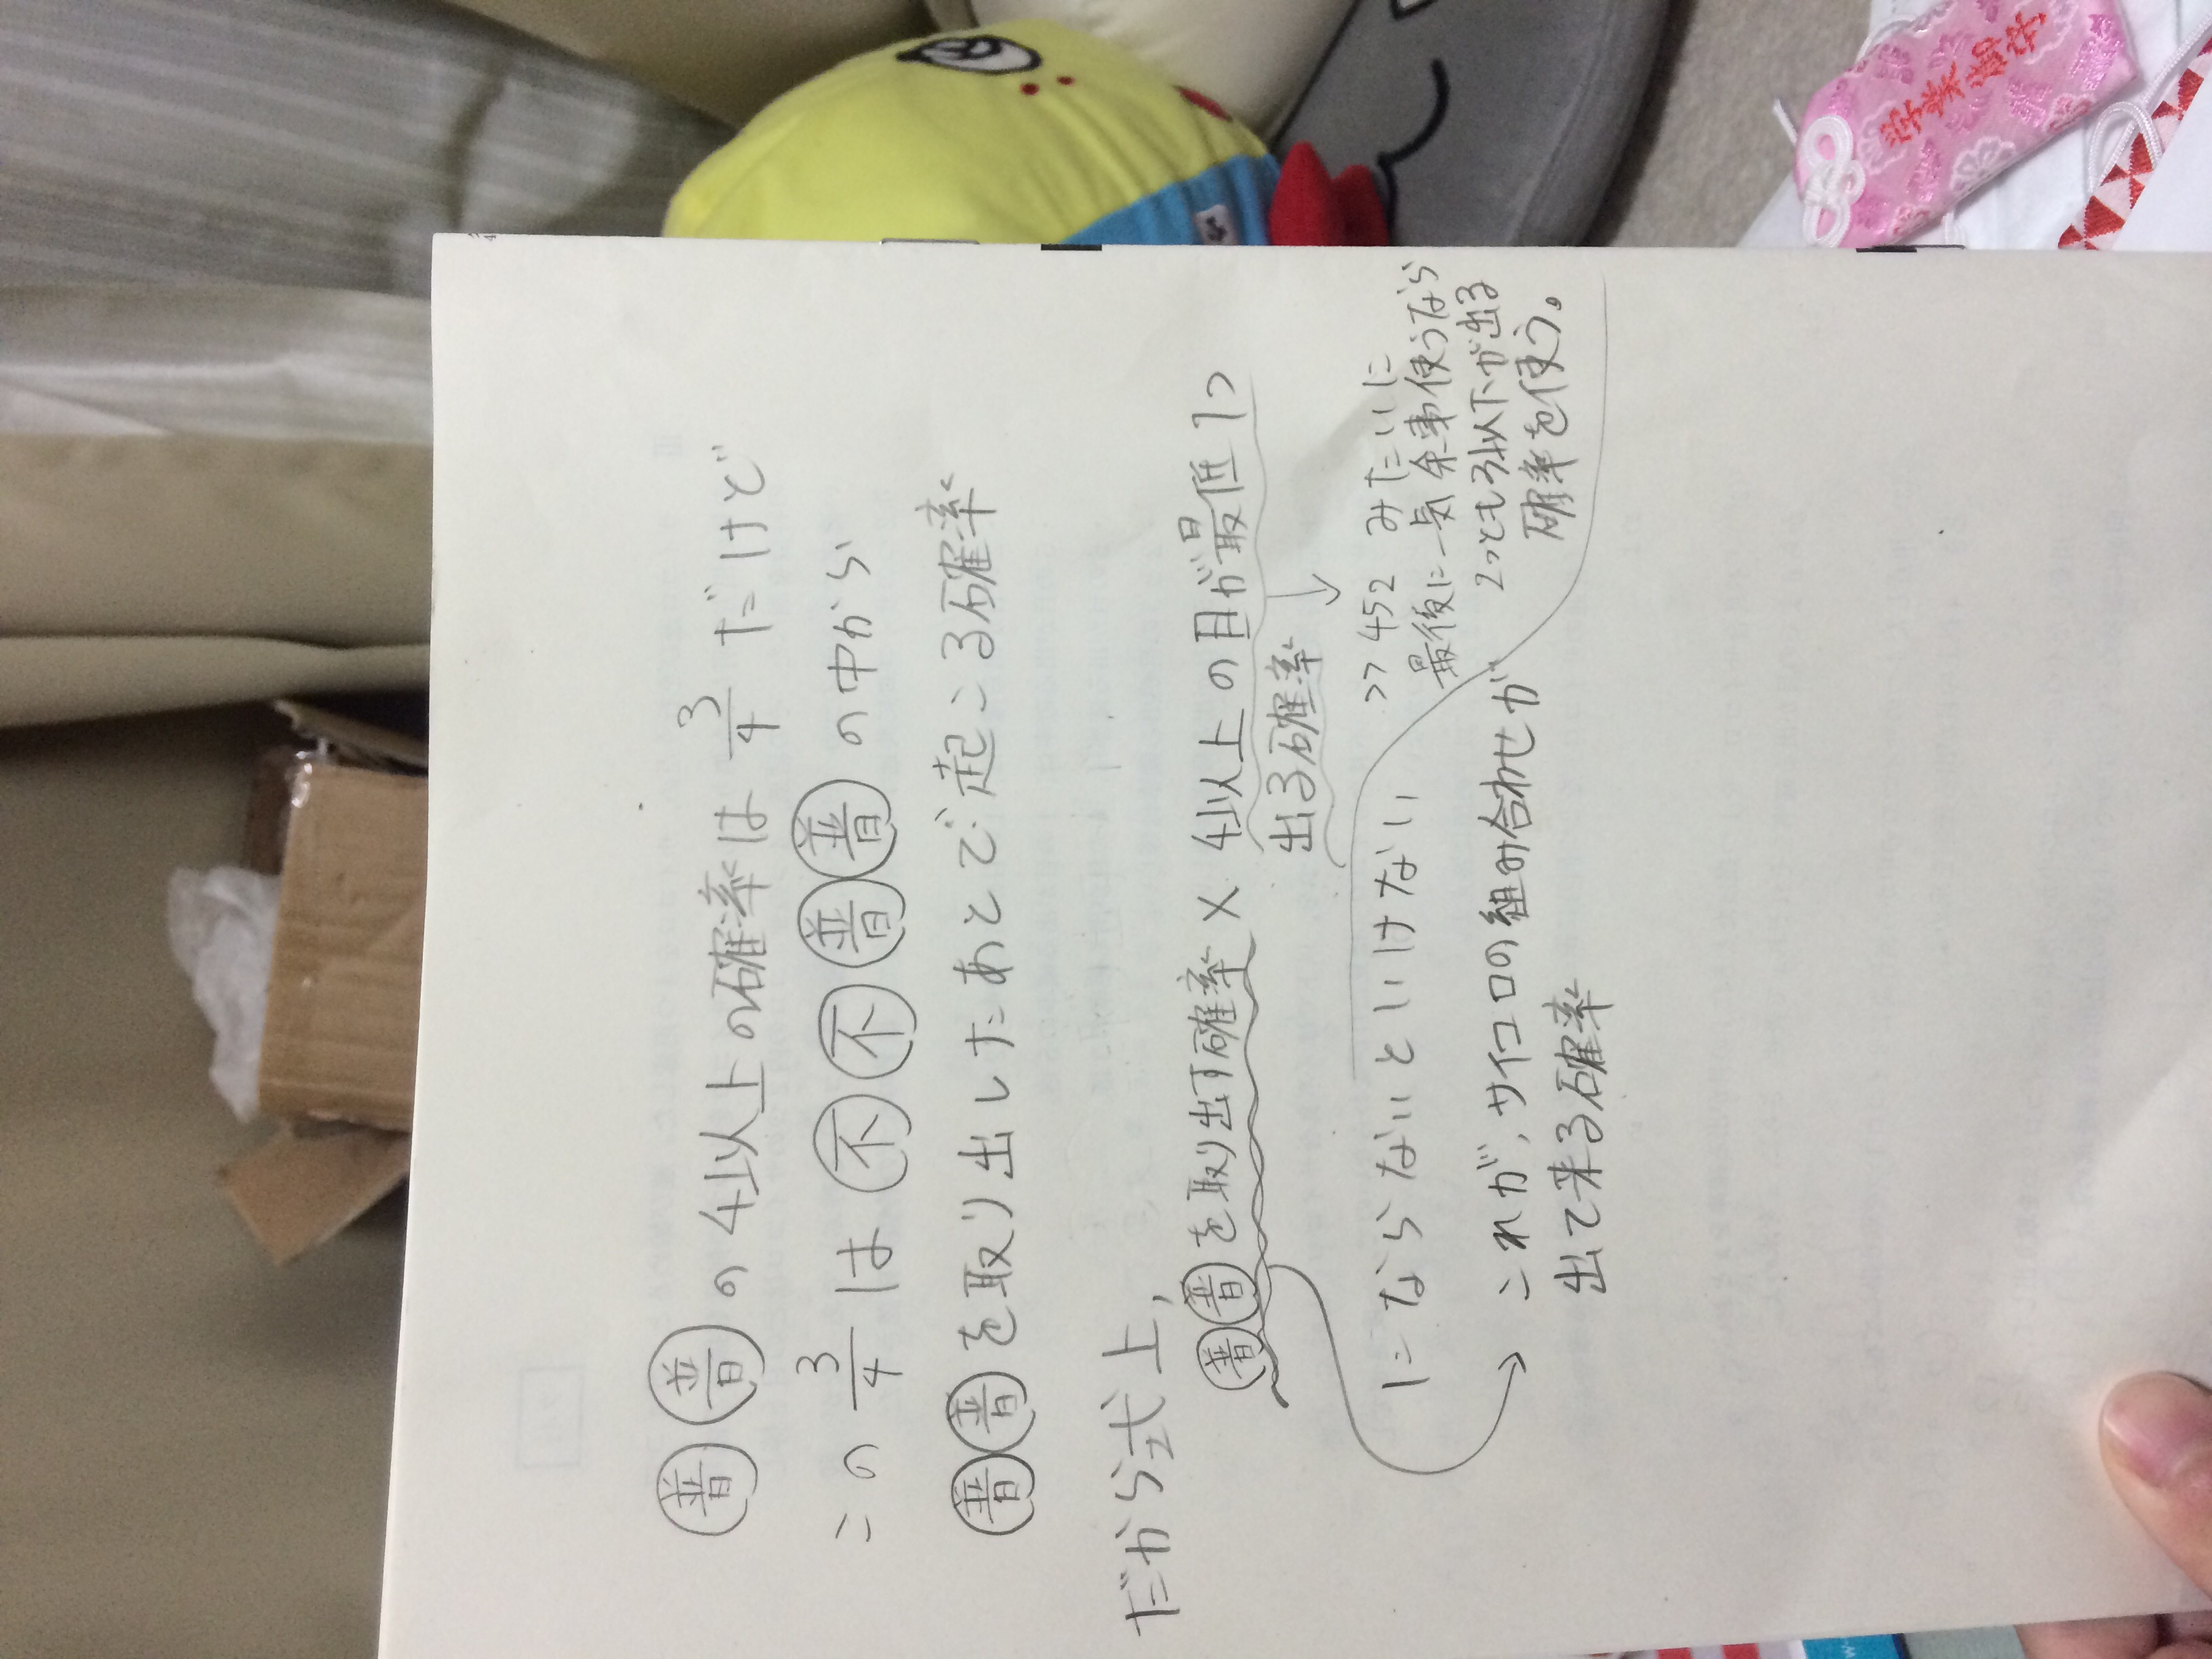 普普の4以上の確率は3/4だけど
この3/4は不不普普の中から
普普を取り出したあとで起こる確率
だから式上、
普普を取り出す確率×4以上の目が最低1つ
出る確率
にならないといけない
>>452 みたいに
最後に一気余事使うなら
2つとも3以下が出る
確率を使う。
これが、サイコロの組み合わせが
出て来る確率
学業御守